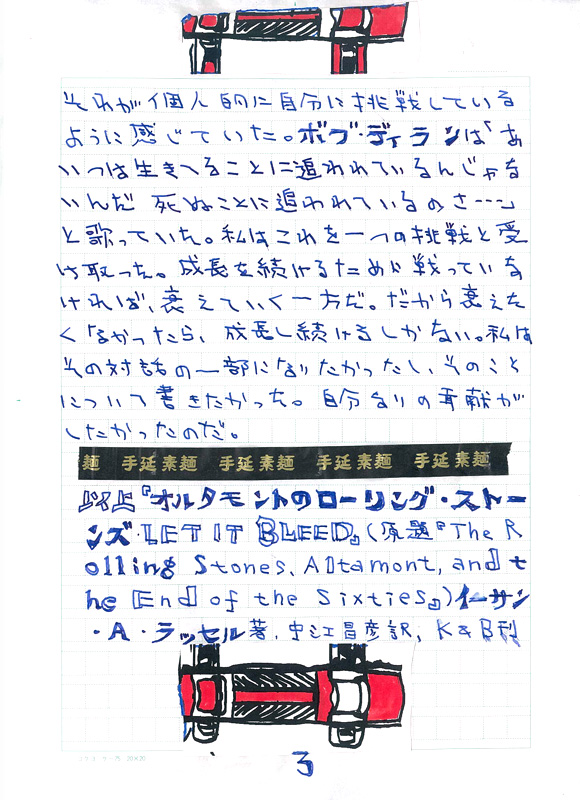 それが個人的に自分に挑戦している
ように感じていた。ボブ・ディランは「あ
いつは生きることに追われているんじゃな
いんだ 死ぬことに追われているのさ……」
と歌っていた。私はこれを一つの挑戦と受
け取った。成長を続けるために戦っていな
ければ、衰えていく一方だ。だから衰えた
くなかったら、成長し続けるしかない。私は
その対話の一部になりたかったし、そのこと
について書きたかった。自分なりの貢献が
したかったのだ。
麺 手延素麺 手延素麺 手延素麺 手延素麺
以上『オルタモントのローリング・ストー
ンズ・LET IT BLEED』(原題『The R
olling Stones, Altamont, and t
he End of the Sixties』)イーサン
・A・ラッセル著, 中江昌彦訳, K&B刊
3